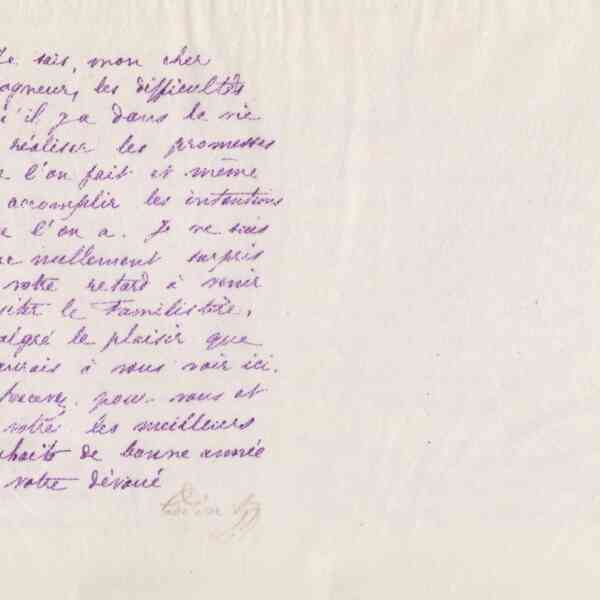 Je sais, mon cher
agneur, les difficultés
u'il y a dans la vie
réaliser les promesses
l'on fait et même
accomplir les intentions
e l'on a. Je ne suis
nc nullement surpris
votre retard à venir
siter le Familistère,
algré le plaisir que
aurais à vous voir ici.
pour vous et
votre les meilleurs
uhaits de bonne année
votre dévoué
Godin